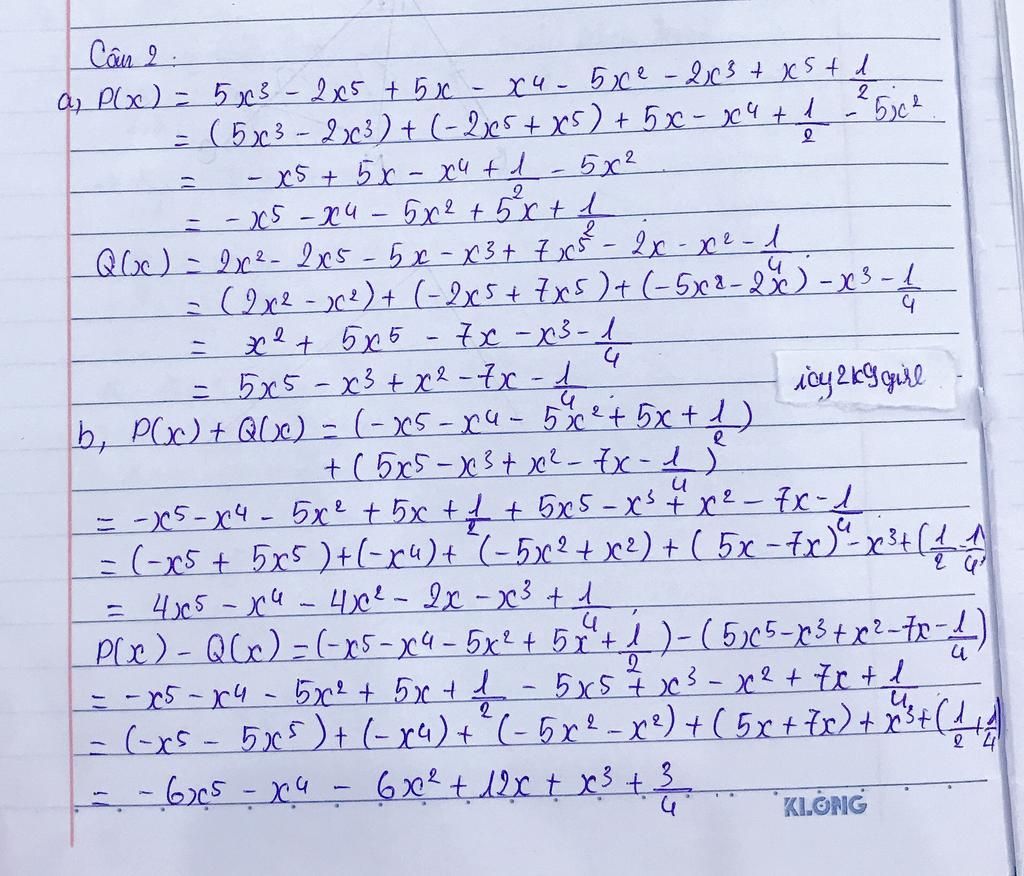 Câu 2:
a, P(x) = 5x³ - 2x⁵ + 5x - x⁴ - 5x² - 2x³ + x⁵ + 1/2
= (5x³ - 2x³) + (-2x⁵ + x⁵) + 5x - x⁴ + 1/2 - 5x²
= - x⁵ + 5x - x⁴ + 1/2 - 5x²
= - x⁵ - x⁴ - 5x² + 5x + 1/2
Q(x) = 2x² - 2x⁵ - 5x - x³ + 7x⁵ - 2x - x² - 1/4
= (2x² - x²) + (-2x⁵ + 7x⁵) + (-5x² - 2x) - x³ - 1/4
= x² + 5x⁵ - 7x - x³ - 1/4
= 5x⁵ - x³ + x² - 7x - 1/4
icy2k9girl
b, P(x) + Q(x) = (-x⁵ - x⁴ - 5x² + 5x + 1/2)
+ (5x⁵ - x³ + x² - 7x - 1/4)
= -x⁵ - x⁴ - 5x² + 5x + 1/2 + 5x⁵ - x³ + x² - 7x - 1/4
= (-x⁵ + 5x⁵) + (-x⁴) + (-5x² + x²) + (5x - 7x) - x³ + (1/2 - 1/4)
= 4x⁵ - x⁴ - 4x² - 2x - x³ + 1/4
P(x) - Q(x) = (-x⁵ - x⁴ - 5x² + 5x + 1/2) - (5x⁵ - x³ + x² - 7x - 1/4)
= -x⁵ - x⁴ - 5x² + 5x + 1/2 - 5x⁵ + x³ - x² + 7x + 1/4
= (-x⁵ - 5x⁵) + (-x⁴) + (-5x² - x²) + (5x + 7x) + x³ + (1/2 + 1/4)
= - 6x⁵ - x⁴ - 6x² + 12x + x³ + 3/4
KLONG